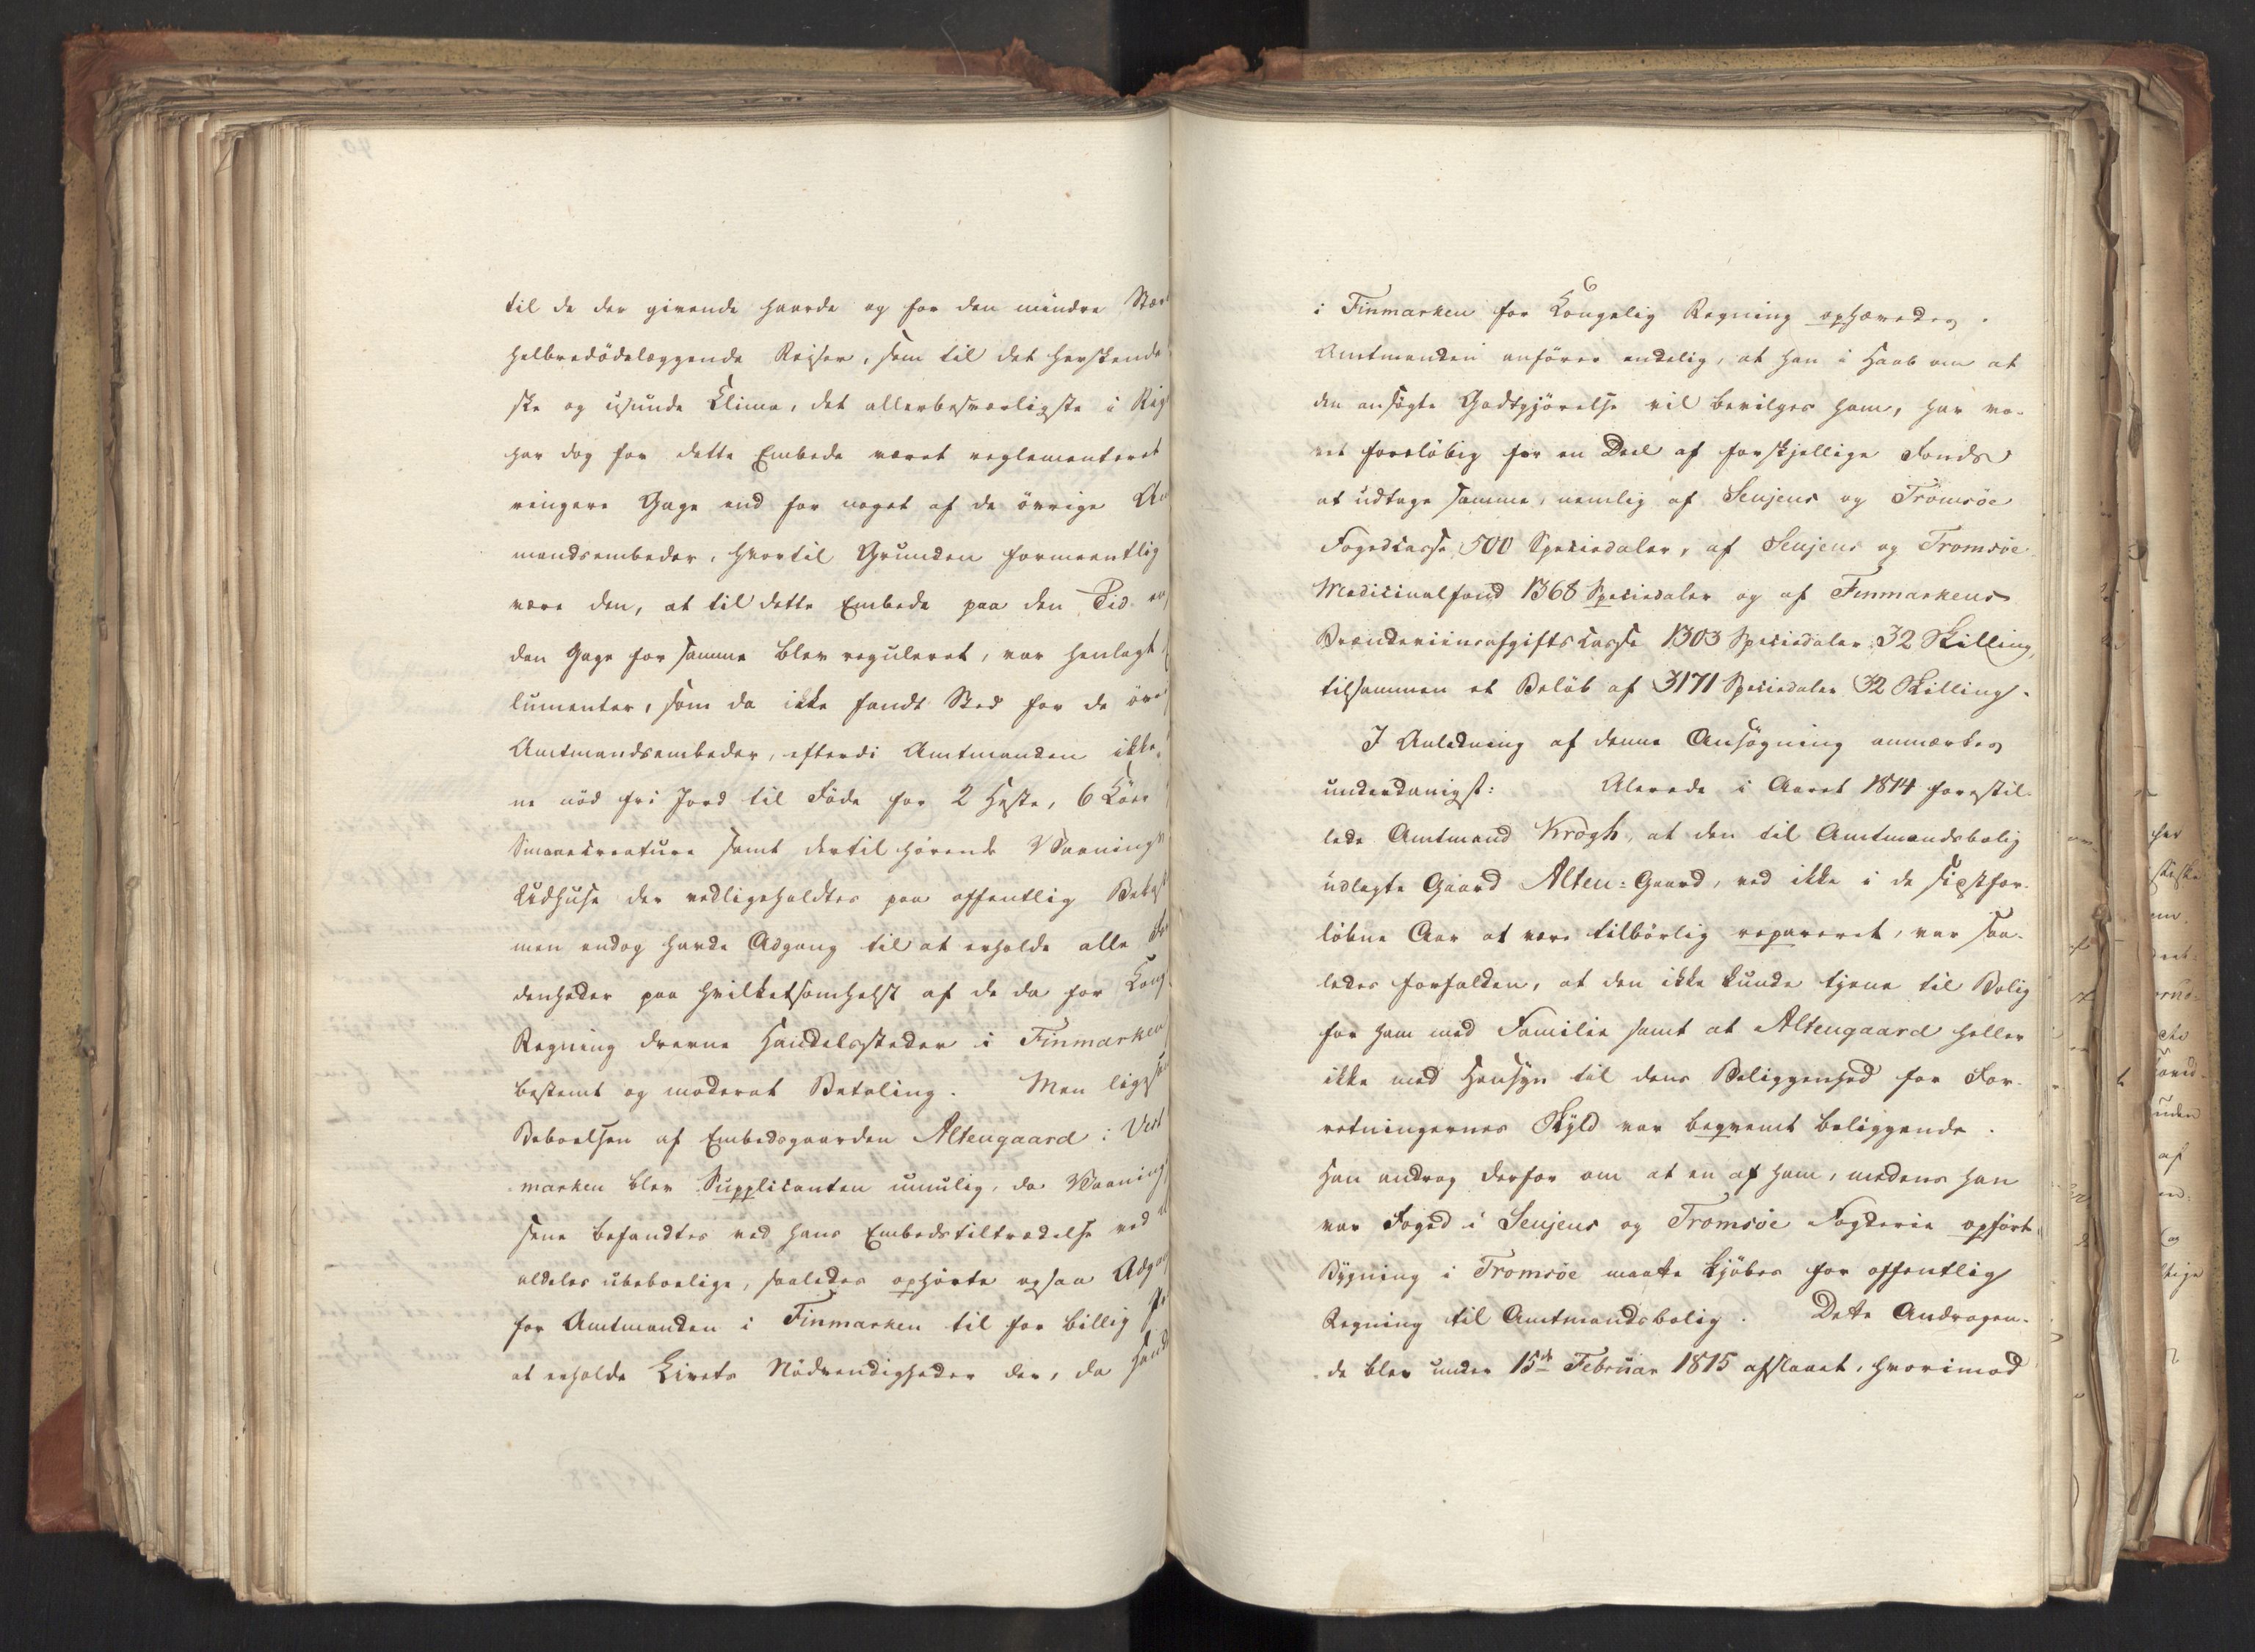 til de der givende haarde og for den mindre Stær
helbredödelæggende Reiser, som til det herskende
ske og usunde Clima, det allerbesværligste i Rig
har dog for dette Embede været reglementeret
ringere Gage end for noget af de övrige Am
mandsembeder, hvortil Grunden formeentlig
være den, at til dette Embede paa den Tid
den Gage for samme blev reguleret, var henlagt
lumenter, som da ikke fandt Sted for de öv
Amtmandsembeder, efterdi Amtmanden ikke
ne nöd fri Jord til Föde for 2 Heste, 6 Köer
Smaaecreature samt dertil hörende Vaanings
Udhuse der vedligeholdtes paa offentlig Bekost
men endog havde Adgang til at erholde alle
denheder paa hvilketsomhelst af de da for Kong
Regning drevne Handelsstæder i Finmarken
bestemt og moderat Betaling. Men ligesom
Beboelsen af Embedsgaarden Altengaard i Vest
marken blev Supplicanten umulig, da Vaanings
sene befandtes ved hans Embedstiltrædelse ved
aldeles ubeboelige, saaledes ophörte ogsaa Adgan
for Amtmanden i Finmarken til for billig
at erholde Livets Nödvendigheder der, da Hand
i Finmarken for Kongelig Regning ophævedes.
Amtmanden anförer endelig, at han i Haab om at
den ansögte Godtgjörelse vil bevilges ham, har væ-
ret foreløbig for en Deel af forskjellige Fonds
at udtage samme, nemlig af Senjens og Tromsöe
Fogedcasse 500 Speciedaler, af Senjens og Tromsöe
Medicinalfond 1368 Speciedaler og af Finmarkens
Brændeviinsafgiftscasse 1303 Speciedaler 32 Skilling,
tilsammen et Belöb af 3171 Speciedaler 32 Skilling.
I Anledning af denne Ansögning anmærkes
underdanigst: Alerede i Aaret 1814 forestil-
lede Amtmand Krogh, at den til Amtmandsbolig
udlagte Gaard Alten-Gaard, ved ikke i de sidstfor-
löbne Aar at være tilbörlig repareret, var saa-
ledes forfalden, at den ikke kunde tjene til Bolig
for ham med Familie samt at Altengaard heller
ikke med Hensyn til dens Beliggenhed for For-
retningernes Skyld var beqvemt beliggende.
Han androg derfor om at en af ham, medens han
var Foged i Senjens og Tromsöe Fogderie opfört
Bygning i Tromsöe maatte kjöbes for offentlig
Regning til Amtmandsbolig. Dette Andragen-
de blev under 15de Februar 1815 afslaaet, hvorimod